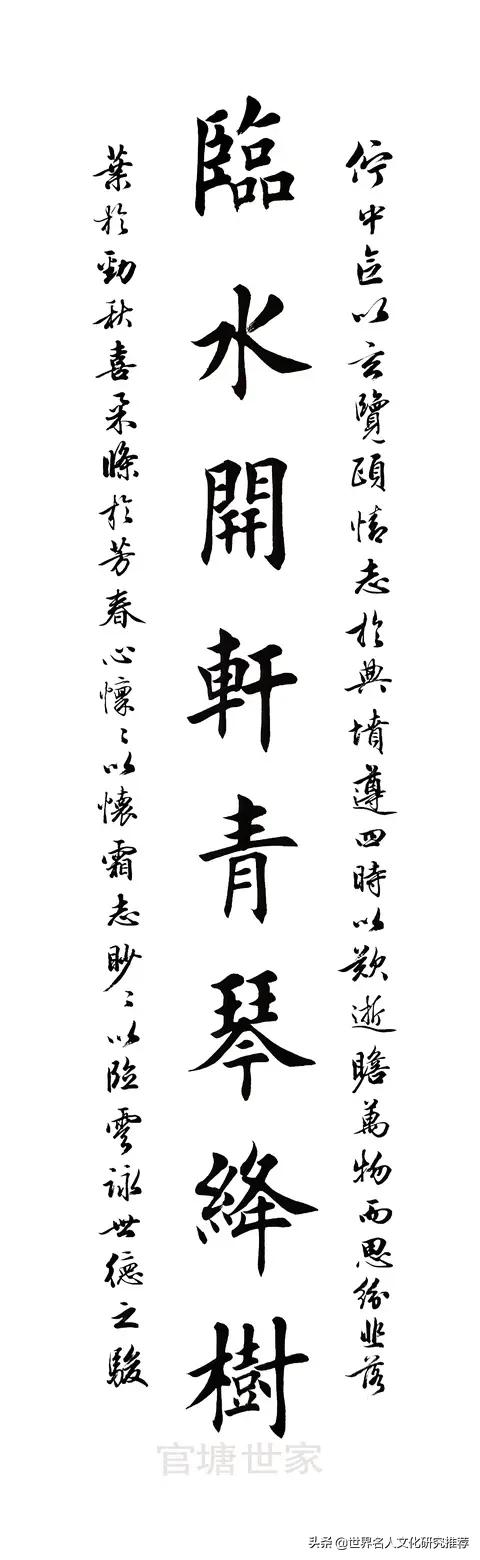 佇中區以玄覽頤情志於典墳遵四時以歎逝瞻萬物而思紛悲落
臨水開軒青琴絳樹
葉於勁秋喜柔條於芳春心懍〻以懷霜志眇〻以臨雲詠世德之駿
官塘世家
头条 @世界名人文化研究推荐